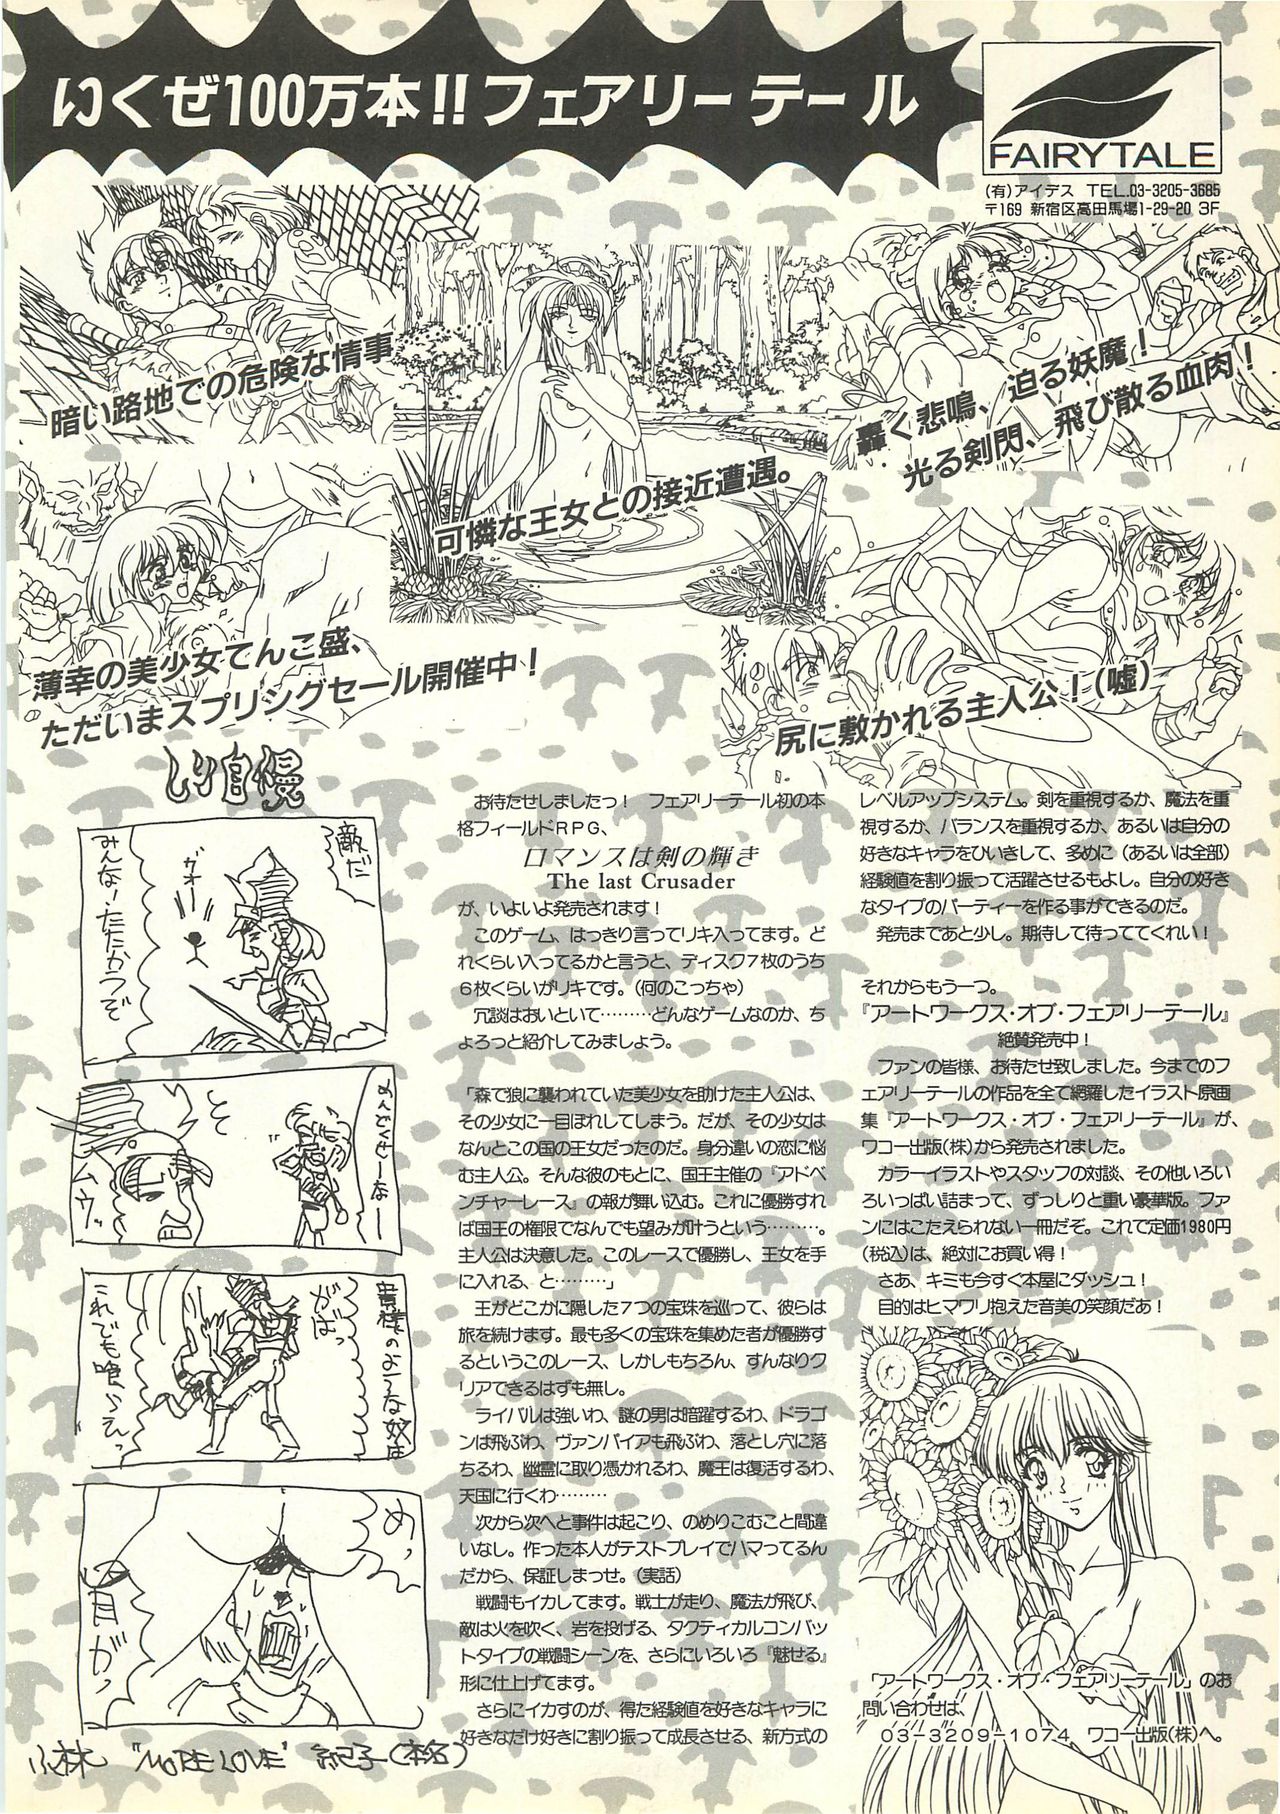 いくぜ100万本!! フェアリーテール
FAIRYTALE
(有)アイデス TEL.03-3205-3685
〒169 新宿区高田馬場1-29-20 3F
暗い路地での危険な情事
可憐な王女との接近遭遇。
轟く悲鳴、迫る妖魔!
光る剣閃、飛び散る血肉!
薄幸の美少女てんこ盛、
ただいまスプリングセール開催中!
尻に敷かれる主人公!(嘘)
しり自慢
敵だ
みんなーたたかうぞ
ガオー
そ
ムウッ
がおっ
これでも喰らえっ
めっ
目がっ
小林 "MORE LOVE" 紀子(本名)
お待たせしましたっ! フェアリーテール初の本
格フィールドRPG、
ロマンスは剣の輝き
The last Crusader
が、いよいよ発売されます!
このゲーム、はっきり言ってリキ入ってます。ど
れくらい入ってるかと言うと、ディスク7枚のうち
6枚くらいがリキです。(何のこっちゃ)
冗談はおいといて………どんなゲームなのか、ち
ょろっと紹介してみましょう。
「森で狼に襲われていた美少女を助けた主人公は、
その少女に一目ぼれしてしまう。だが、その少女は
なんとこの国の王女だったのだ。身分違いの恋に悩
む主人公。そんな彼のもとに、国王主催の『アドベ
ンチャーレース』の報が舞い込む。これに優勝すれ
ば国王の権限でなんでも望みが叶うという………。
主人公は決意した。このレースで優勝し、王女を手
に入れる、と………」
王がどこかに隠した7つの宝珠を巡って、彼らは
旅を続けます。最も多くの宝珠を集めた者が優勝す
るというこのレース、しかしもちろん、すんなりク
リアできるはずも無し。
ライバルは強いわ、謎の男は暗躍するわ、ドラゴ
ンは飛ぶわ、ヴァンパイアも飛ぶわ、落とし穴に落
ちるわ、幽霊に取り憑かれるわ、魔王は復活するわ、
天国に行くわ………
次から次へと事件は起こり、のめりこむこと間違
いなし。作った本人がテストプレイでハマってるん
だから、保証しまっせ。(実話)
戦闘もイカしてます。戦士が走り、魔法が飛び、
敵は火を吹く、岩を投げる、タクティカルコンバッ
トタイプの戦闘シーンを、さらにいろいろ『魅せる』
形に仕上げてます。
さらにイカすのが、得た経験値を好きなキャラに
好きなだけ好きに割り振って成長させる、新方式の
レベルアップシステム。剣を重視するか、魔法を重
視するか、バランスを重視するか、あるいは自分の
好きなキャラをひいきして、多めに(あるいは全部)
経験値を割り振って活躍させるもよし。自分の好き
なタイプのパーティーを作る事ができるのだ。
発売まであと少し。期待して待っててくれい!
それからもう一つ。
『アートワークス・オブ・フェアリーテール』
絶賛発売中!
ファンの皆様、お待たせ致しました。今までのフ
ェアリーテールの作品を全て網羅したイラスト原画
集『アートワークス・オブ・フェアリーテール』が、
ワコー出版(株)から発売されました。
カラーイラストやスタッフの対談、その他いろい
ろいっぱい詰まって、ずっしりと重い豪華版。ファ
ンにはこたえられない一冊だぞ。これで定価1980円
(税込)は、絶対にお買い得!
さあ、キミも今すぐ本屋にダッシュ!
目的はヒマワリ抱えた音美の笑顔だあ!
「アートワークス・オブ・フェアリーテール」のお
問い合わせは、
03-3209-1074 ワコー出版(株)へ。